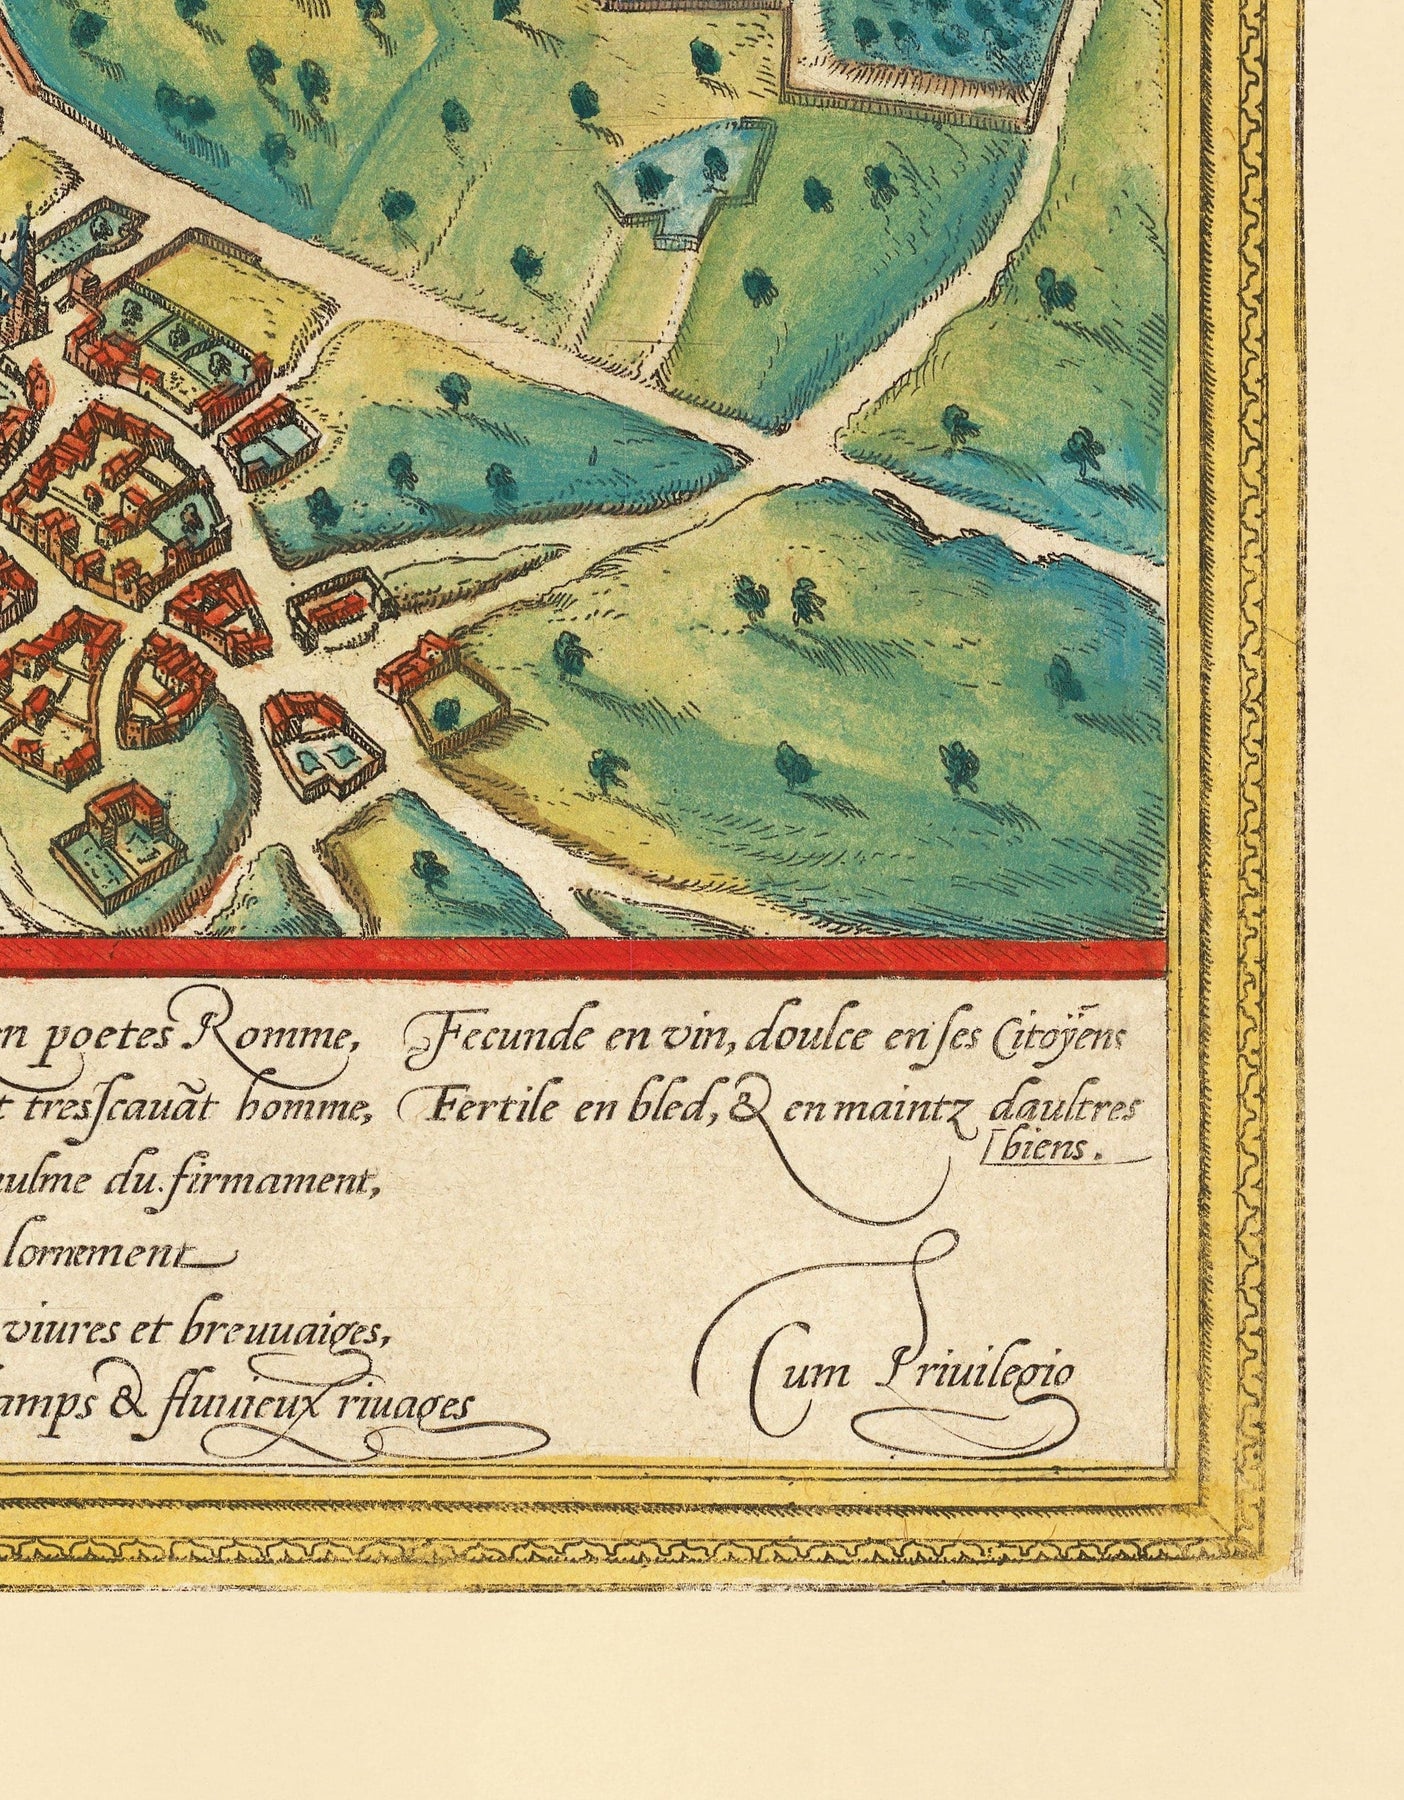 en poetes Romme,
t tresscauãt homme,
aulme du firmament,
lornement
viures et breuuaiges,
amps & fluuieux riuages
Fecunde en vin, doulce en ses Citoÿens
Fertile en bled, & en maintz daultres
[biens.
Cum Priuilegio